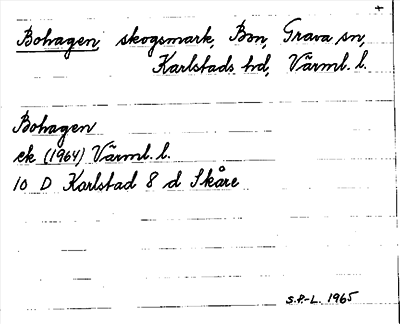 +
Bohagen, skogsmark, Bon, Grava sn,
Karlstads hd, Värml. l.
Bohagen
ek (1964) Värml. l.
10 D Karlstad 8 d Skåre
S.P.-L. 1965